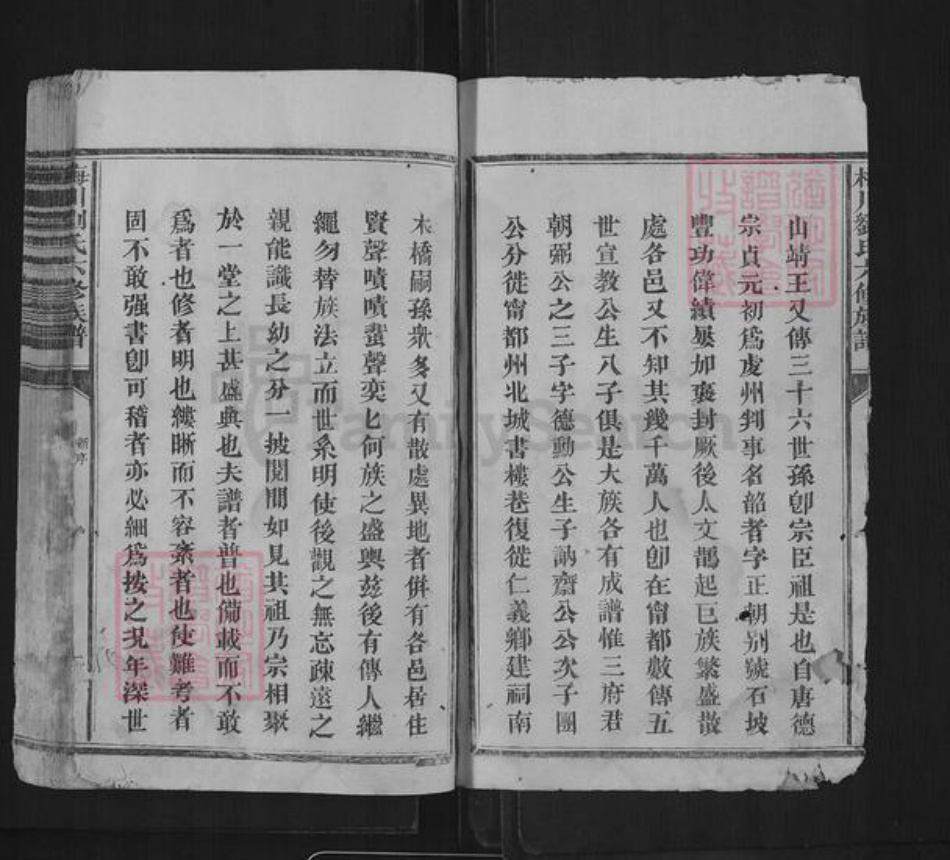 山靖王又傳三十六世孫卽宗臣祖是也自唐德
宗貞元初爲虔州判事名韶者字正朝别號石坡
豐功偉績屢加褒封厥後人文鵲起巨族繁盛散
處各邑又不知其幾千萬人也卽在甯都數傳五
世宣教公生八子俱是大族各有成譜惟三府君
朝弼公之三子字德勳公生子訥齋公公次子團
公分徙甯都州北城書樓巷復徙仁義鄉建祠南
木橋嗣孫衆多又有散處異地者倂有各邑居住
賢聲嘖嘖蜚聲奕匕何族之盛與兹後有傳人繼
繩勿替族法立而世系明使後觀之無忘疎遠之
親能識長幼之分一披閱間如見其祖乃宗相聚
於一堂之上甚盛典也夫譜者普也備載而不敢
爲者也修者明也縷晰而不容紊者也使難考者
固不敢强書卽可稽者亦必細爲按之況年深世
梅川劉氏六修族譜
新序